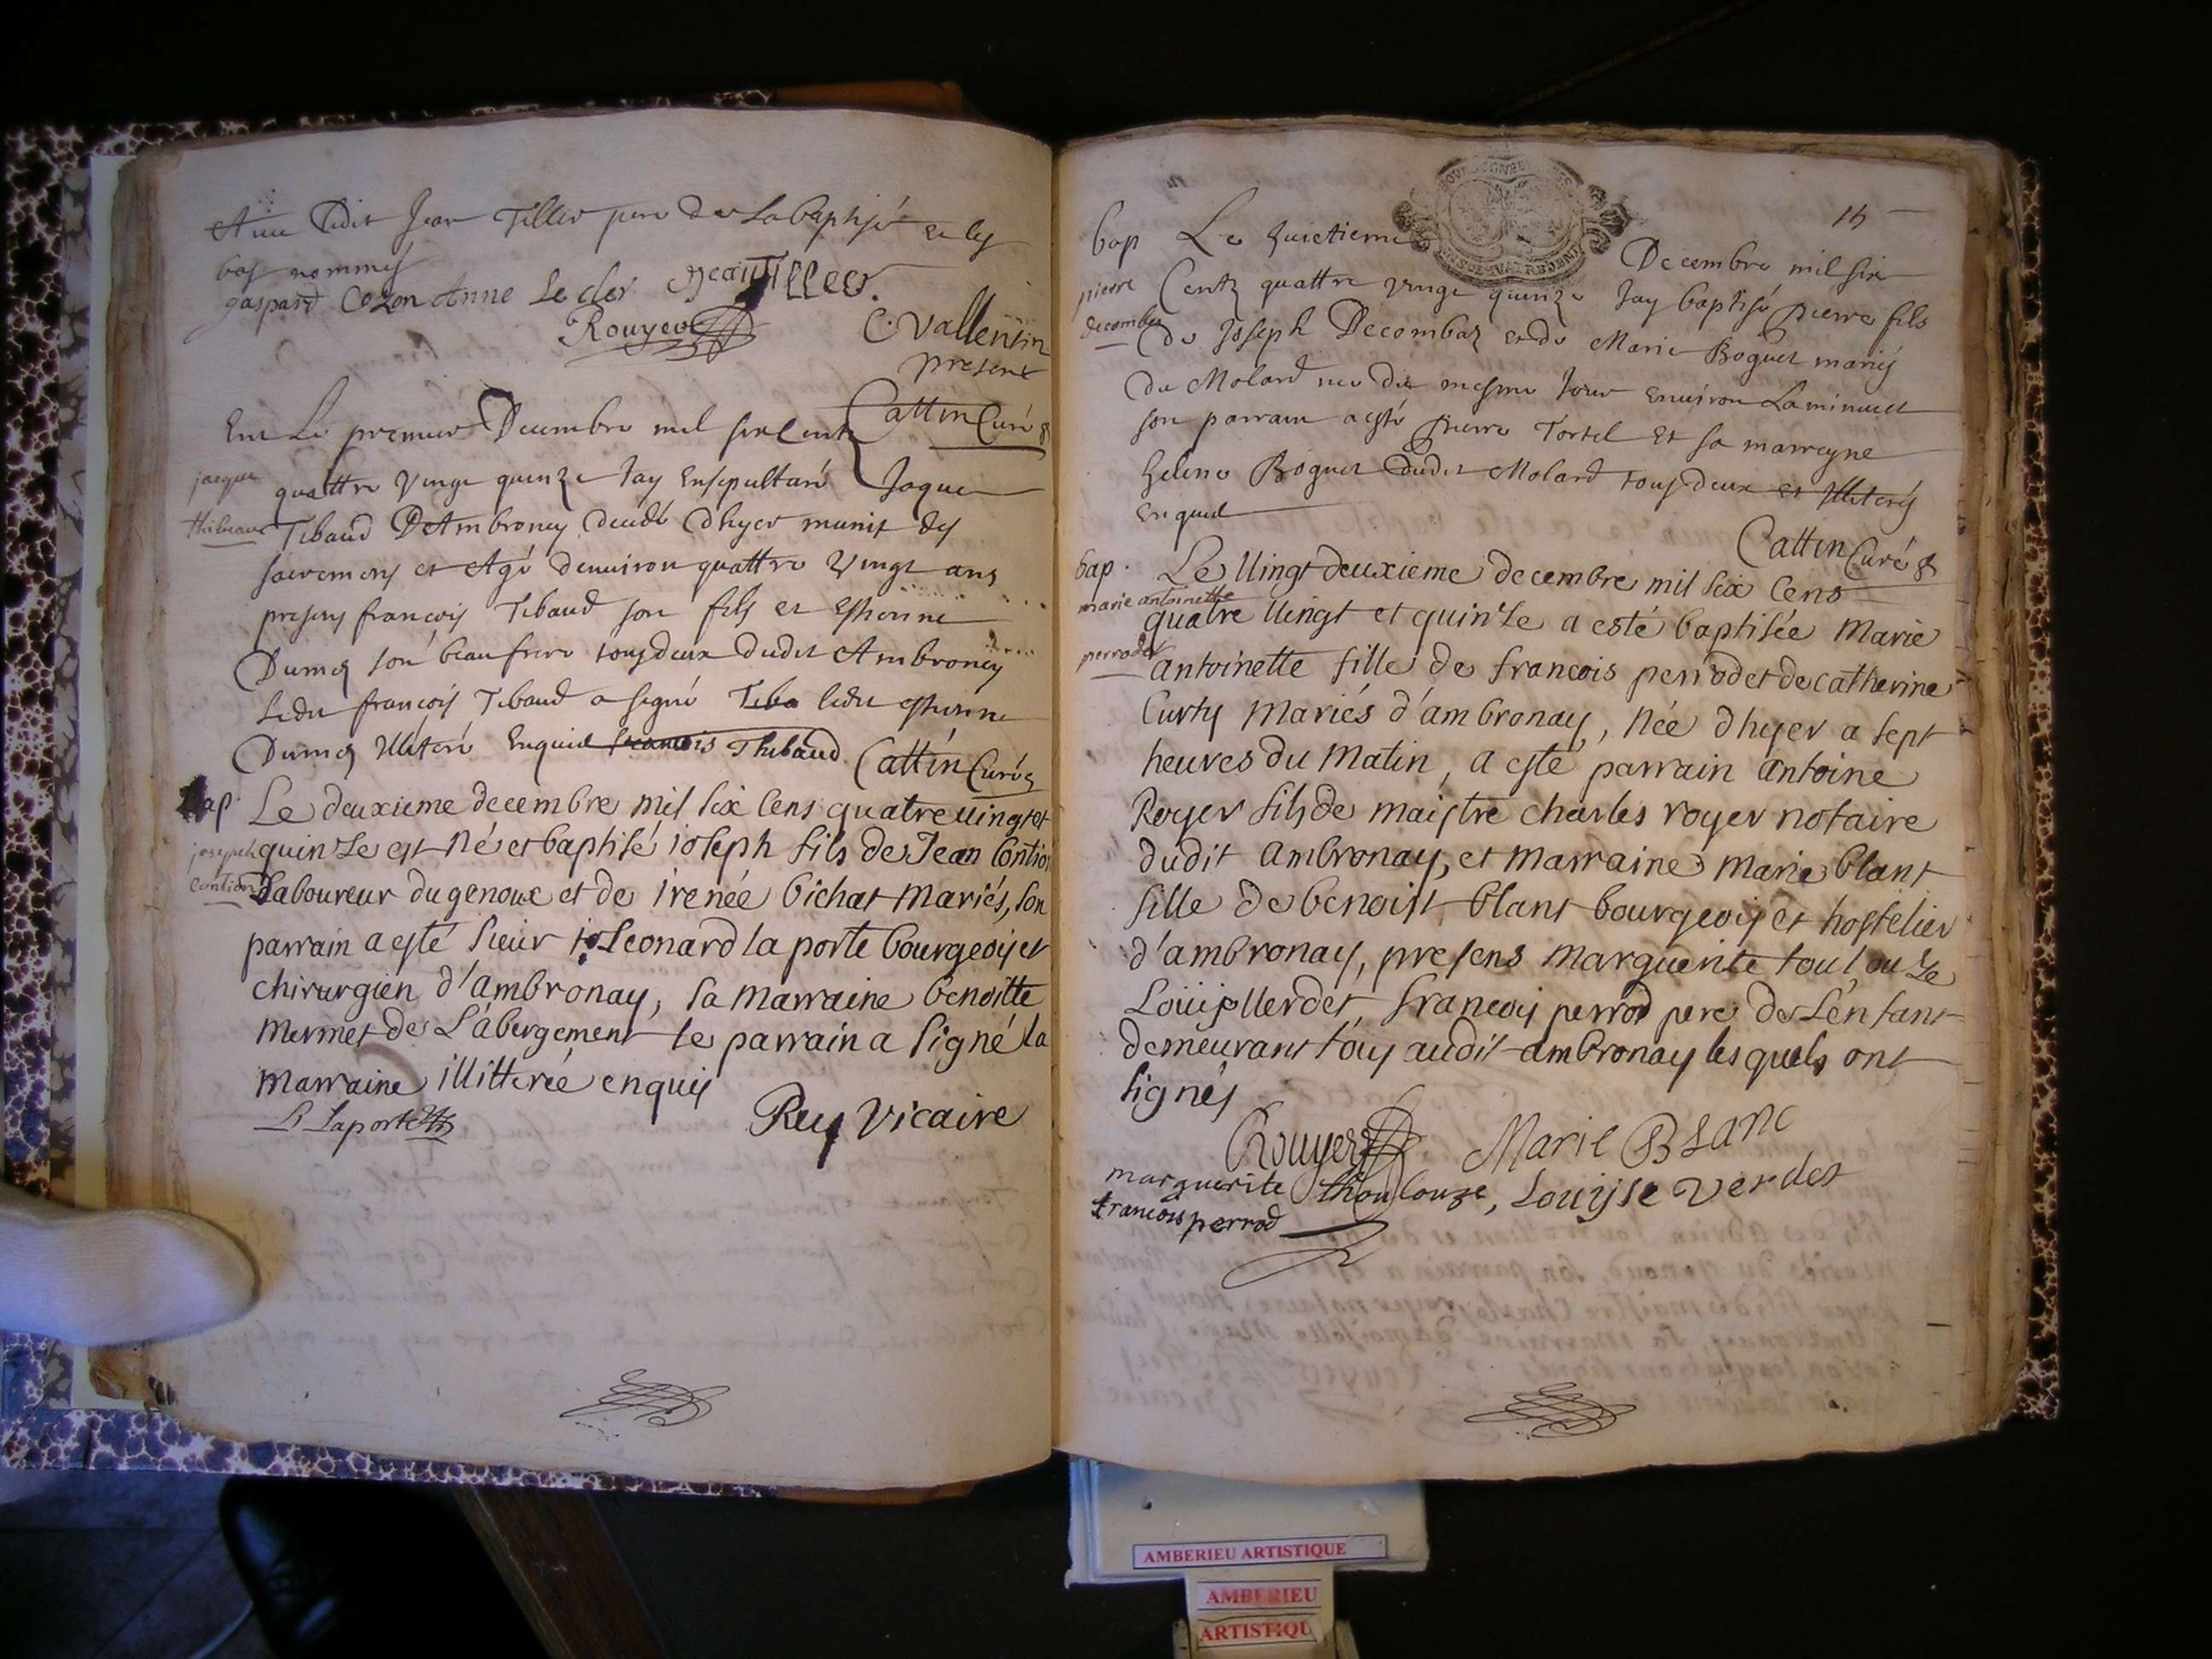 Avec ledit Jean Tiller pere de La baptisé et les
bas nommes
gaspard Cozon Anne Le cler Jean Tiller
Rouyer C. Vallentin
present
Cattin Curé
Ent Le premier Decembre mil six centz
jaque
thibeau
quattre vingt quinze Jay Ensepulturé Jaque
Tibaud D'Ambroney decedé d'hyer munit des
sacremens et Agé denviron quattre vingt ans
presens francois Tibaud son fils et Estienne
Dumas son beau frere tous deux dudit Ambroney
Ledit francois Tibaud a signé ledit estienne
Dumas illiteré Enquis francois Thibaud Cattin Curé
bap
joseph
contion
Le deuxieme decembre mil six cens quatre uingt et
quinze est né et baptisé ioseph fils de Jean Contion
Laboureur du genoux et de irenée bichat mariés, son
parrain a esté sieur Leonard la porte bourgeois et
chirurgien d'ambronay, sa marraine benoitte
mermet de L'abergement le parrain a signé la
marraine illitterée enquis
L Laporte Rey vicaire
15
bap
pierre
decombe
Le huictieme Decembre mil six
Centz quattre vingt quinze Jay baptisé pierre fils
de Joseph Decombaz et de Marie Boguet mariés
du Molard né du mesme Jour environ La minuit
son parrain a esté pierre Tortel et sa marreyne
helene Boguet dudit Molard tous deux et illiterés
enquis
Cattin Curé
bap.
marie antoinette
perrodet
Le Uingt deuxieme decembre mil six cens
quatre Uingt et quinze a esté baptisée Marie
antoinette fille de francois perrod et de catherine
Curty mariés d'ambronay, née d'hyer a sept
heures du matin, a esté parrain antoine
Royer fils de maistre charles royer notaire
dudit ambronay, et marraine marie blant
fille de benoist blant bourgeois et hostelier
d'ambronay, presens marguerite toulouze
Loüise Uerdet, francois perrod pere de L'enfant
demeurant tous audit ambronay lesquels ont
signés
Rouyer Marie Blanc
marguerite thoulouze, Louijse verdet
francois perrod
AMBERIEU ARTISTIQUE
AMBERIEU
ARTISTIQU